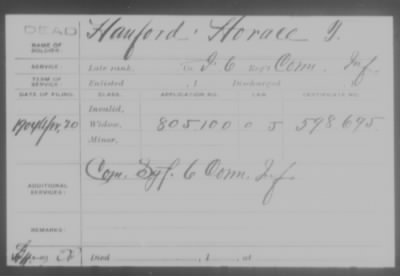 DEAD
NAME OF SOLDIER: Hanford, Horace Y.
SERVICE: Late rank, Co. I. 6 Reg't Conn. Inf.
TERM OF SERVICE: Enlisted , 1 Discharged , 1
DATE OF FILING. CLASS. APPLICATION NO. LAW. CERTIFICATE NO.
Invalid,
1904 Apr. 20 Widow, 805100 0 5 598695.
Minor,
ADDITIONAL SERVICES: Com. Sgt. 6 Conn. Inf.
REMARKS:
Died , 1 , at